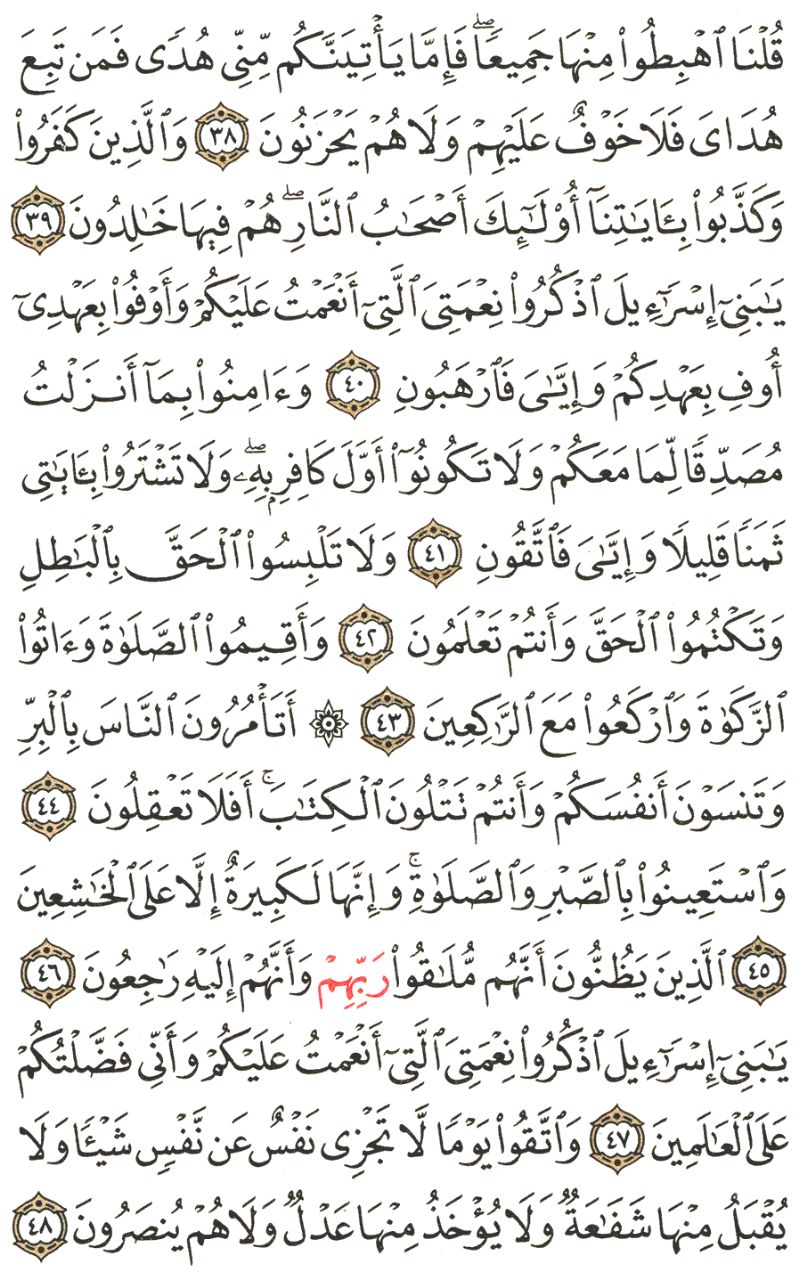 قُلۡنَا ٱهۡبِطُواْ مِنۡهَا جَمِيعٗاۖ فَإِمَّا يَأۡتِيَنَّكُم مِّنِّي هُدٗى فَمَن تَبِعَ
هُدَايَ فَلَا خَوۡفٌ عَلَيۡهِمۡ وَلَا هُمۡ يَحۡزَنُونَ ٣٨ وَٱلَّذِينَ كَفَرُواْ
وَكَذَّبُواْ بِـَٔايَٰتِنَآ أُوْلَٰٓئِكَ أَصۡحَٰبُ ٱلنَّارِۖ هُمۡ فِيهَا خَٰلِدُونَ ٣٩
يَٰبَنِيٓ إِسۡرَٰٓءِيلَ ٱذۡكُرُواْ نِعۡمَتِيَ ٱلَّتِيٓ أَنۡعَمۡتُ عَلَيۡكُمۡ وَأَوۡفُواْ بِعَهۡدِيٓ
أُوفِ بِعَهۡدِكُمۡ وَإِيَّٰيَ فَٱرۡهَبُونِ ٤٠ وَءَامِنُواْ بِمَآ أَنزَلۡتُ
مُصَدِّقٗا لِّمَا مَعَكُمۡ وَلَا تَكُونُوٓاْ أَوَّلَ كَافِرِۭ بِهِۦۖ وَلَا تَشۡتَرُواْ بِـَٔايَٰتِي
ثَمَنٗا قَلِيلٗا وَإِيَّٰيَ فَٱتَّقُونِ ٤١ وَلَا تَلۡبِسُواْ ٱلۡحَقَّ بِٱلۡبَٰطِلِ
وَتَكۡتُمُواْ ٱلۡحَقَّ وَأَنتُمۡ تَعۡلَمُونَ ٤٢ وَأَقِيمُواْ ٱلصَّلَوٰةَ وَءَاتُواْ
ٱلزَّكَوٰةَ وَٱرۡكَعُواْ مَعَ ٱلرَّٰكِعِينَ ٤٣ ۞ أَتَأۡمُرُونَ ٱلنَّاسَ بِٱلۡبِرِّ
وَتَنسَوۡنَ أَنفُسَكُمۡ وَأَنتُمۡ تَتۡلُونَ ٱلۡكِتَٰبَۚ أَفَلَا تَعۡقِلُونَ ٤٤
وَٱسۡتَعِينُواْ بِٱلصَّبۡرِ وَٱلصَّلَوٰةِۚ وَإِنَّهَا لَكَبِيرَةٌ إِلَّا عَلَى ٱلۡخَٰشِعِينَ
٤٥ ٱلَّذِينَ يَظُنُّونَ أَنَّهُم مُّلَٰقُواْ رَبِّهِمۡ وَأَنَّهُمۡ إِلَيۡهِ رَٰجِعُونَ ٤٦
يَٰبَنِيٓ إِسۡرَٰٓءِيلَ ٱذۡكُرُواْ نِعۡمَتِيَ ٱلَّتِيٓ أَنۡعَمۡتُ عَلَيۡكُمۡ وَأَنِّي فَضَّلۡتُكُمۡ
عَلَى ٱلۡعَٰلَمِينَ ٤٧ وَٱتَّقُواْ يَوۡمٗا لَّا تَجۡزِي نَفۡسٌ عَن نَّفۡسٖ شَيۡـٔٗا وَلَا
يُقۡبَلُ مِنۡهَا شَفَٰعَةٞ وَلَا يُؤۡخَذُ مِنۡهَا عَدۡلٞ وَلَا هُمۡ يُنصَرُونَ ٤٨